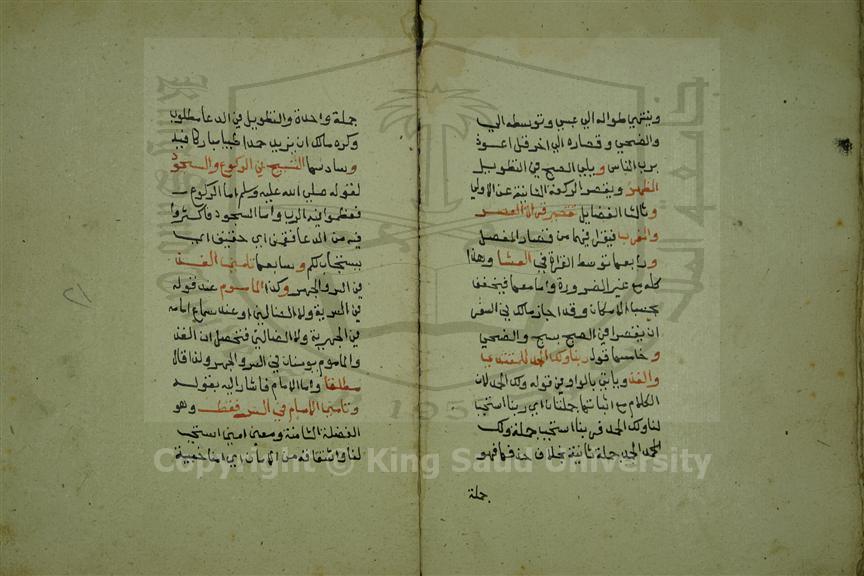 وينتهي طواله الي عبس وتوسطه الي
والضحي وقصاره الي اخر قل اعوذ
برب الناس ويلي الصبح في التطويل
الظهر ويقصر الركعة الثانية عن الاولي
وثالث الفضايل تقصير قراة العصر
والمغرب فيقرا فيهما من قصار المفصل
ورابعها توسط القراة في العشا وهذا
كله مع غير الضرورة واما معها فيخفف
بحسب الامكان وقد اجاز مالك في السفر
ان يقصر في الصبح بسبح والضحي
وخامسها قول ربنا ولك الحمد للمقتدي
والفذ وياتي بالواو في قوله ولك الحمد لان
الكلام مع اثباتها جملتان اي ربنا استجب
لنا ولك الحمد فربنا استجب جملة ولك
الحمد جملة ثانية بخلاف حذفها فهو
جملة
جملة واحدة والتطويل في الدعا مطلوب
وكره مالك ان يزيد حمدا طيبا مباركا فيه
وسادسها التسبيح في الركوع والسجود
لقوله صلي الله عليه وسلم اما الركوع
فعظموا فيه الرب واما السجود فاكثروا
فيه من الدعا فقمن اي حقيق ان
يستجاب لكم وسابعها تامين الفذ
في السر والجهر وكذا الماموم عند قوله
في السرية ولا الضالين او عند سماع امامه
في الجهرية ولا الضالين فتحصل ان الفذ
والماموم يومنان في السر والجهر ولذا قال
مطلقا واما الامام فاشار اليه بقوله
وتامين الامام في السر فقط وهو
الفضلة الثامنة ومعني امين استجب
لنا واشتقاقه من
Copyright © King Saud University
جامعة الملك سعود
1957